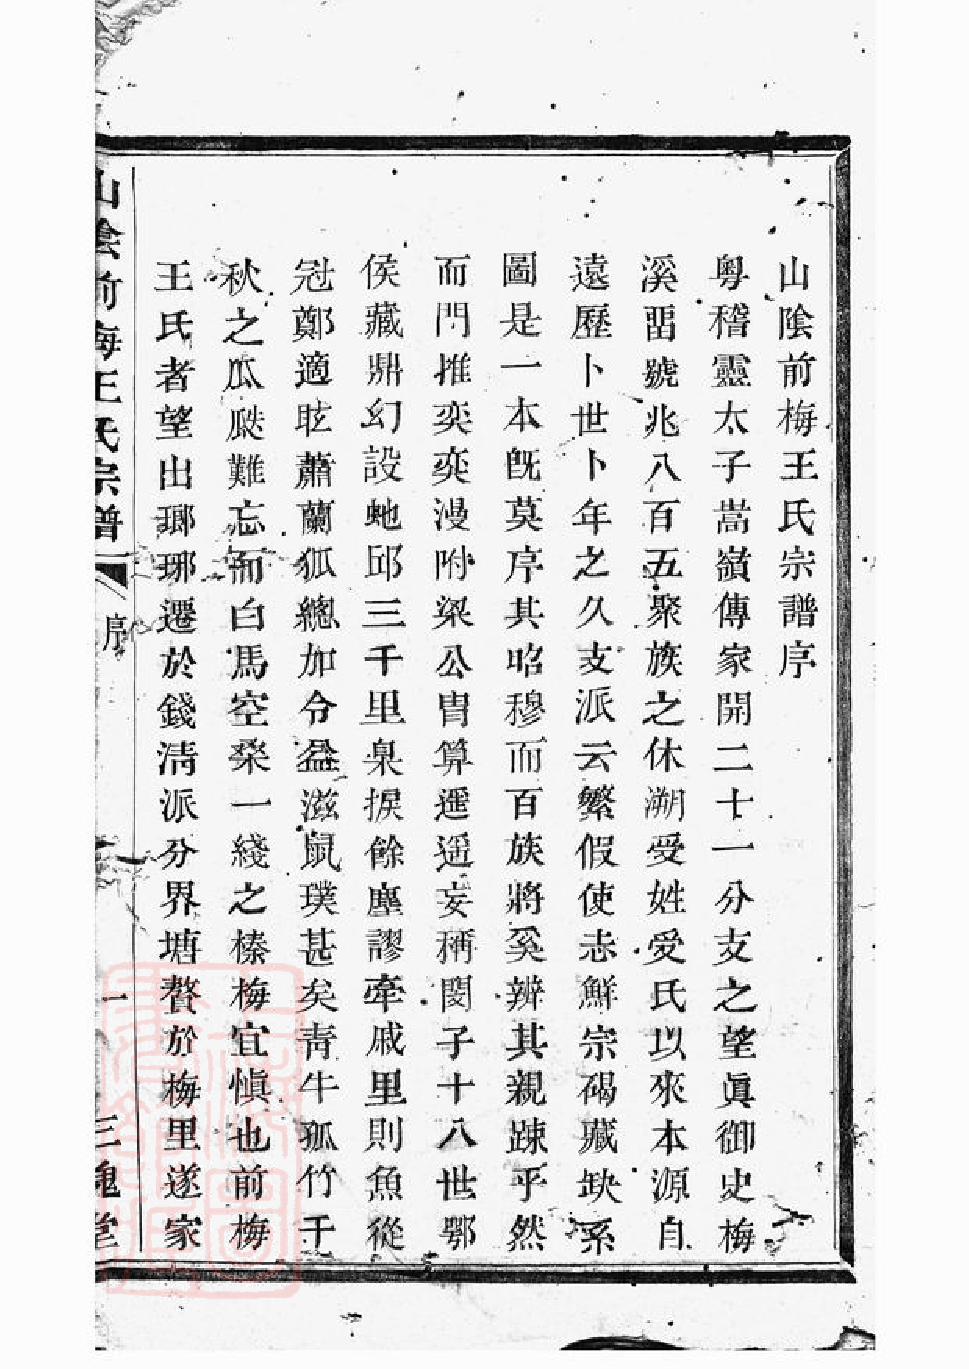 山陰前梅王氏宗譜序
粤稽靈太子嵩嶺傳家開二十一分支之望眞御史梅
溪畱號兆八百五聚族之休溯受姓爰氏以來本源自
遠歷卜世卜年之久支派云繁假使志鮮宗碣藏缺系
圖是一本旣莫序其昭穆而百族將奚辨其親踈乎然
而門推奕奕漫附梁公胄算遥遥妄稱閔子十八世鄂
侯藏鼎幻設虵邱三千里臬捩餘塵謬牽戚里則魚從
冠鄭適眩蕭蘭狐總加令益滋鼠璞甚矣靑牛孤竹千
秋之瓜瓞難忘而白馬空桑一綫之榛梅宜愼也前梅
王氏者望出瑯琊遷於錢淸派分界塘贅於梅里遂家
山陰前梅王氏宗譜
序
一
三槐堂